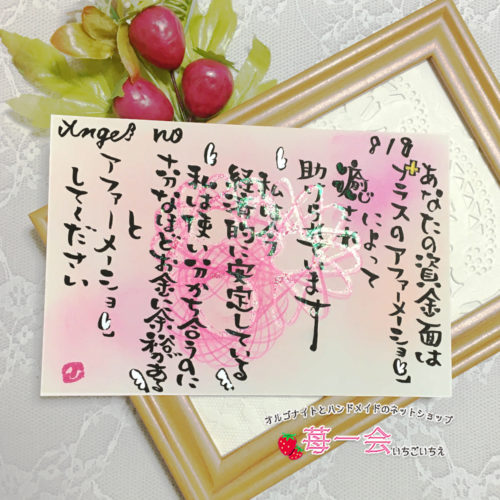 Angel no
818
あなたの資金面は
プラスのアファーメーション
によって
癒され
助けられています
私は今
経済的に安定している
私は使い分かち合うのに
十分なほどお金に余裕がある
と
アファーメーション
してください
オルゴナイトとハンドメイドのネットショップ
苺一会
いちごいちえ